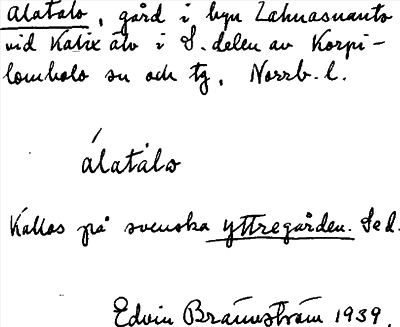 Alatalo, gård i byn Lahnasuanto
vid Kalix älv i S. delen av Korpi-
lombolo sn och tg, Norrb. l.
álatálo
Kallas på svenska yttregården. Se d.
Edvin Brännström 1939.